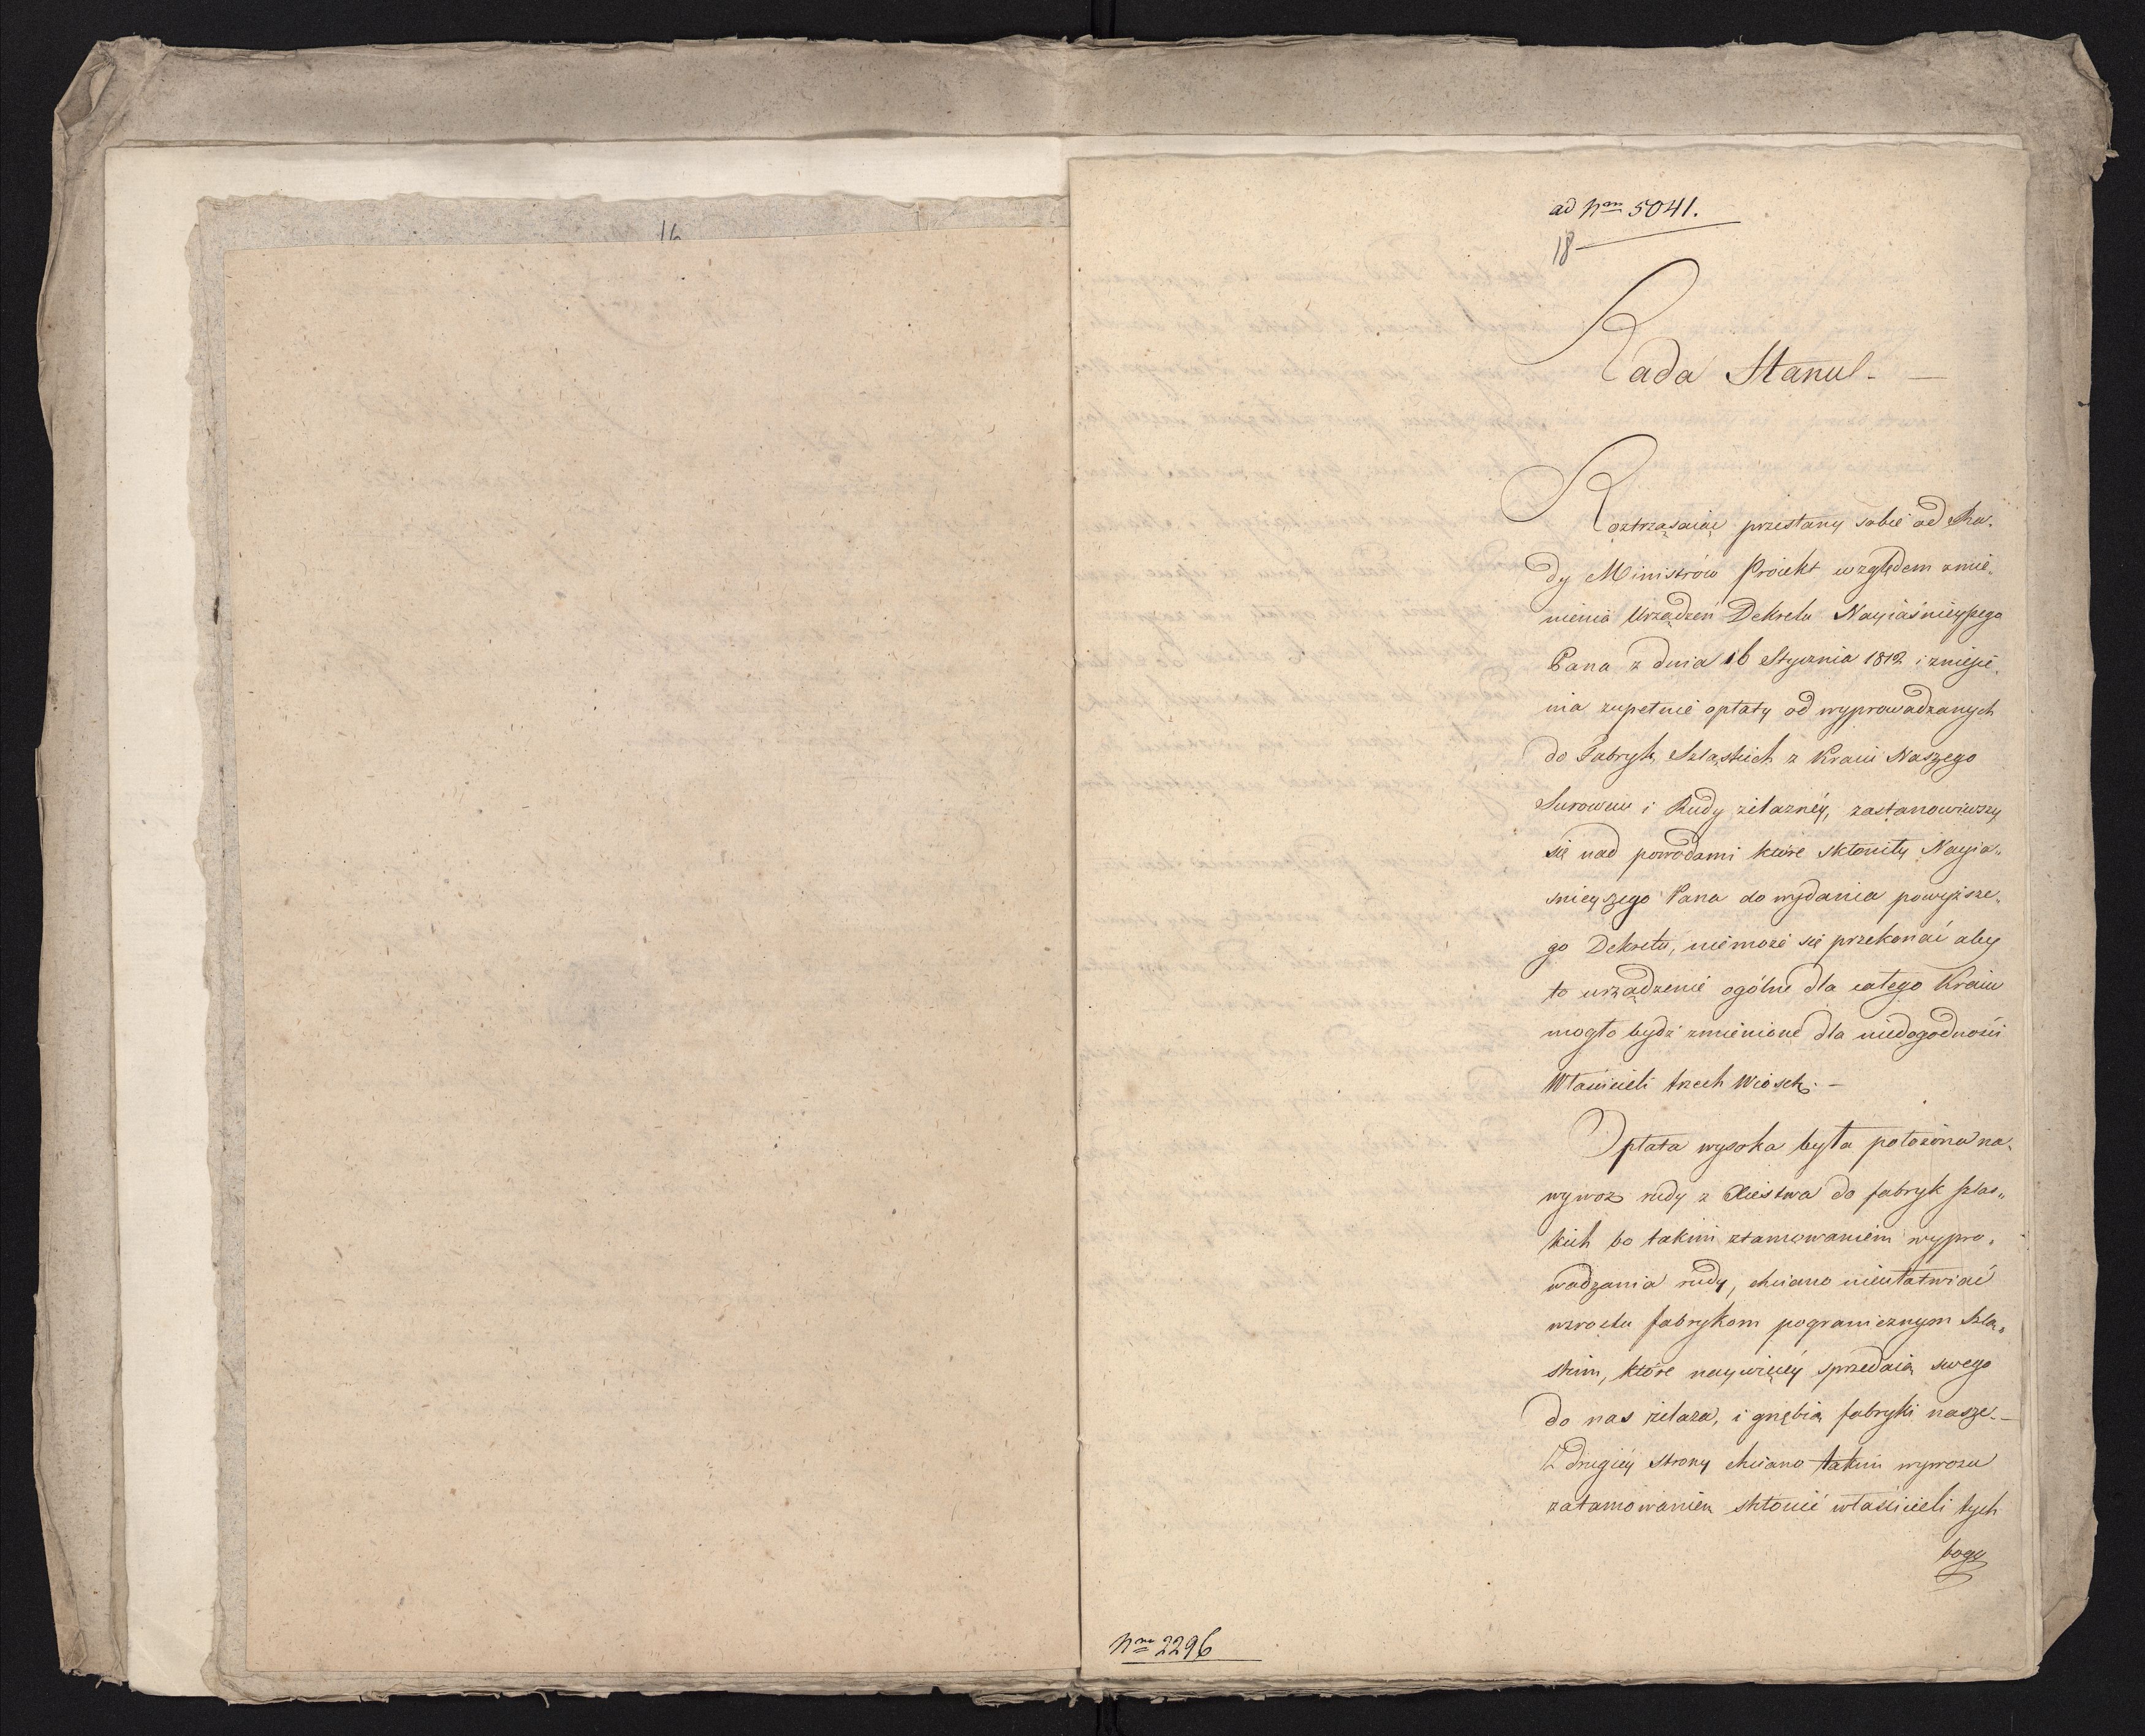 16
ad Nrm 5041.
18
Rada Stanu. —
Roztrząsaiąc przesłany sobie od Ra„
dy Ministrów Proiekt względem zmie„
nienia Urządzeń Dekretu Nayiaśnieyszego
Pana z dnia 16 Stycznia 1812 i zniesie„
nia zupełnie opłaty od wyprowadzanych
do Fabryk Szląskich z Kraiu Naszego
Surowcu i Rudy żelazney, zastanowiwszy
się nad powodami które skłoniły Nayia„
śnieyszego Pana do wydania powyższe„
go Dekretu, nie może się przekonać aby
to urządzenie ogólne dla całego Kraiu
mogło bydź zmienione dla niedogodności
Właścicieli trzech Wiosek. —
Opłata wysoka była położona na
wywoz rudy z Xięstwa do fabryk szlas„
kich bo takim ztamowaniem wypro„
wadzania rudy, chciano nieułatwiać
wzrostu fabrykom pogranicznym Szla„
skim, które naywięcey sprzedaią swego
do nas żelaza, i gnębią fabryki nasze. —
Z drugiey strony chciano takim wywozu
zatamowaniem skłonić właścicieli tych
boga
Nro 2296